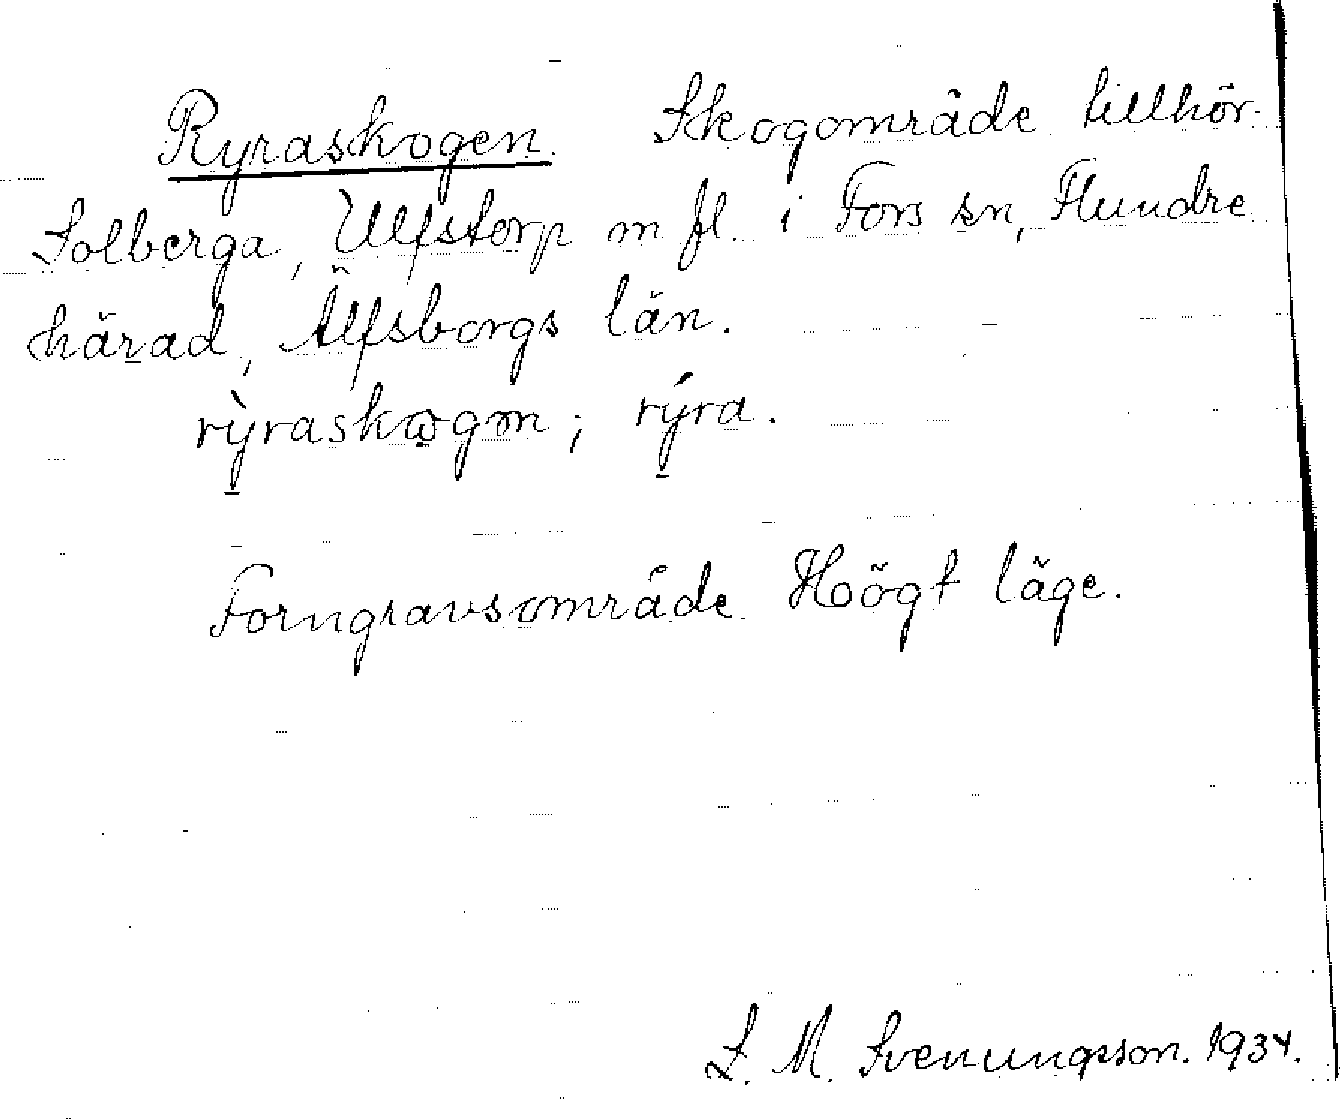 Ryraskogen. Skogområde tillhör.
Solberga, Ulfstorp m fl. i Fors sn, Flundre
härad, Älfsborgs län.
rỳraskogen; rýra.
Forngravsområde. Höögt läge.
S. M. Svenungsson. 1934.